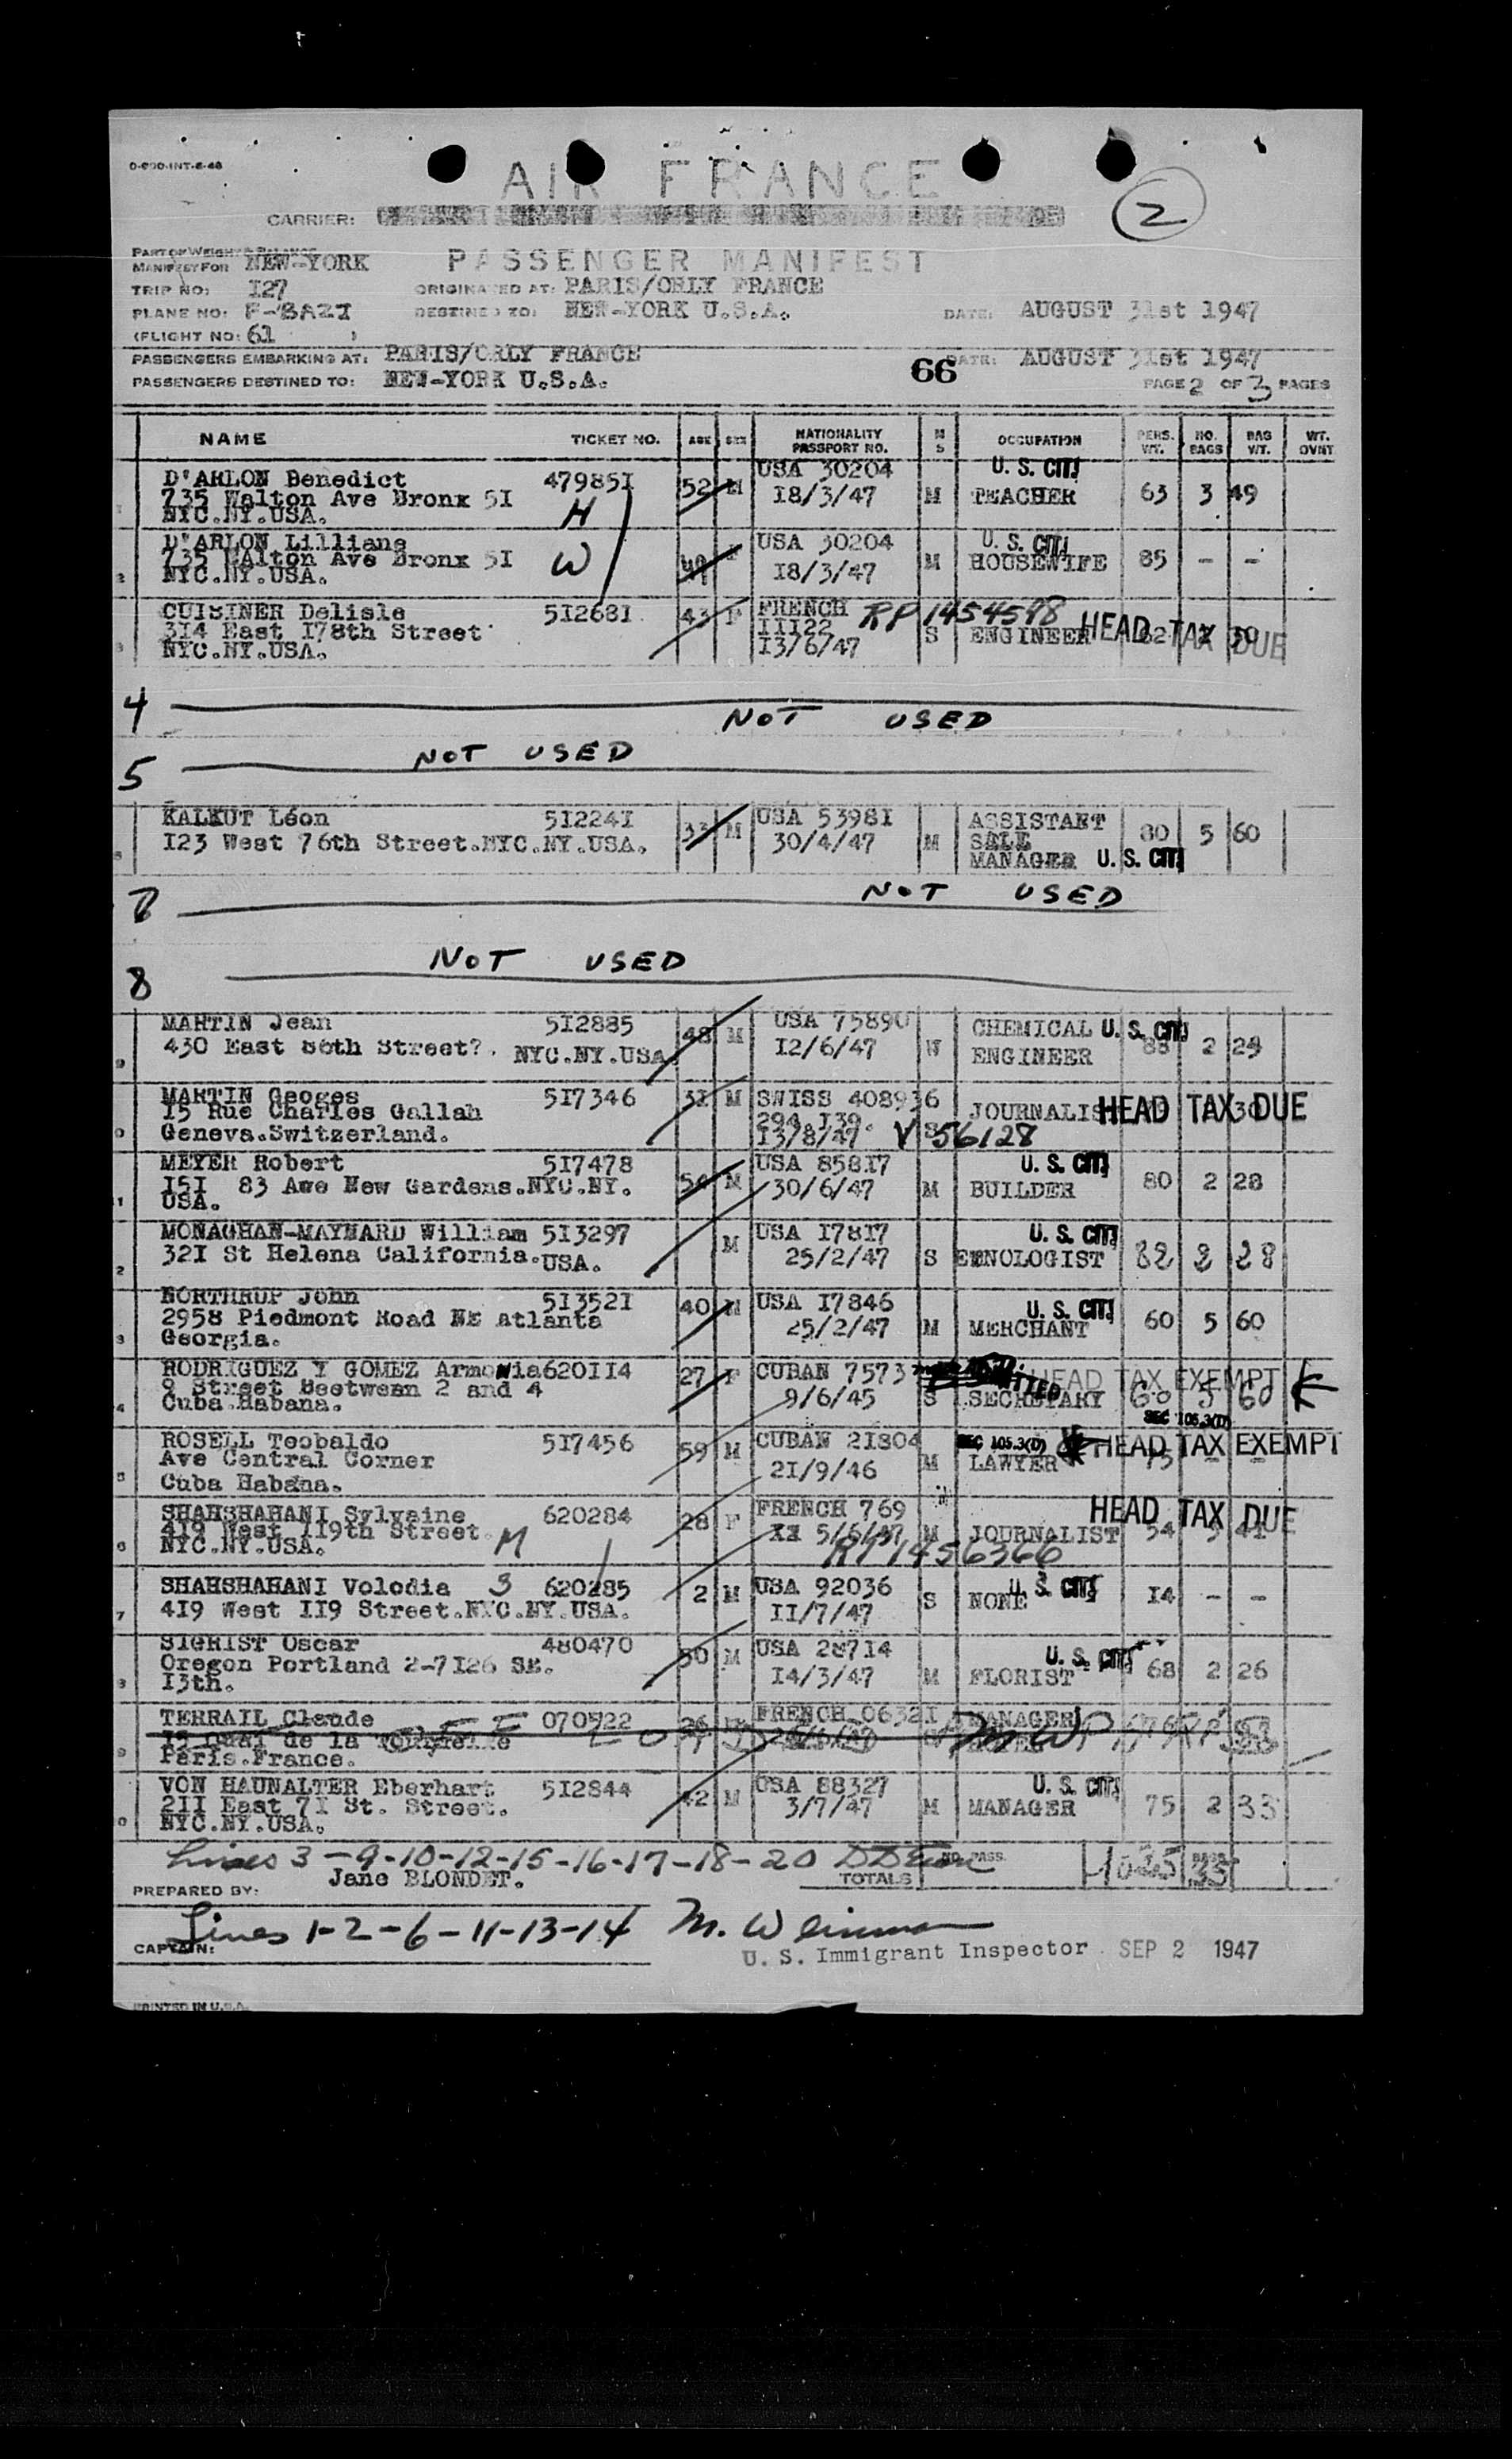 0-690-INT-6-46
AIR FRANCE
CARRIER:
2
PART OF WEIGHT & BALANCE
MANIFEST FOR NEW-YORK
PASSENGER MANIFEST
TRIP NO: I27 ORIGINATED AT: PARIS/ORLY FRANCE
PLANE NO: DESTINED TO: NEW-YORK U.S.A. DATE: AUGUST 31st 1947
(FLIGHT NO: 61 )
PASSENGERS EMBARKING AT: PARIS/ORLY FRANCE 66 DATE: AUGUST 31st 1947
PASSENGERS DESTINED TO: NEW-YORK U.S.A. PAGE 2 OF 3 PAGES
NAME TICKET NO. AGE SEX NATIONALITY PASSPORT NO. M S OCCUPATION PERS. WT. NO. BAGS BAG WT. WT. OVNT
D'ARLON Benedict 47985I 52 M USA 30204 U. S. CIT.
735 Walton Ave Bronx 5I H I8/3/47 M TEACHER 63 3 49
NYC.NY.USA.
D'ARLON Lilliane W F USA 30204 U. S. CIT.
735 Walton Ave Bronx 5I I8/3/47 M HOUSEWIFE 85 - -
NYC.NY.USA.
CUISINER Delisle 5I268I 43 F FRENCH RP 1454598
3I4 East I78th Street III22 S ENGINEER 62 HEAD TAX DUE
NYC.NY.USA. I3/6/47
4 NOT USED
5 NOT USED
KALKUT Léon 5I224I 33 M USA 5398I ASSISTANT
I23 West 76th Street.NYC.NY.USA. 30/4/47 M SALE 80 5 60
MANAGER U. S. CIT.
7 NOT USED
8 NOT USED
MARTIN Jean 5I2885 48 M USA 75890 CHEMICAL U. S. CIT.
430 East 86th Street?. NYC.NY.USA. I2/6/47 W ENGINEER 88 2 29
MARTIN Geoges 5I7346 3I M SWISS 408936 JOURNALIST HEAD TAX DUE
I5 Rue Charles Gallah 294.I39. S
Geneva.Switzerland. I3/8/47 V 56128
MEYER Robert 5I7478 54 M USA 858I7 U. S. CIT.
I5I 83 Awe New Gardens.NYC.NY. 30/6/47 M BUILDER 80 2 28
USA.
MONAGHAN-MAYNARD William 5I3297 M USA I78I7 U. S. CIT.
32I St Helena California.USA. 25/2/47 S 82 2 28
NORTHRUP John 5I352I 40 M USA I7846 U. S. CIT.
2958 Piedmont Road NE Atlanta 25/2/47 M MERCHANT 60 5 60
Georgia.
RODRIGUEZ Y GOMEZ Armonia 620II4 27 F CUBAN 7573 HEAD TAX EXEMPT
9 Street Beetwean 2 and 4 9/6/45 S SECRETARY 60 5 60
Cuba.Habana. SEC 105.3(D)
ROSELL Teobaldo 5I7456 59 M CUBAN 2I804 SEC 105.3(D) HEAD TAX EXEMPT
Ave Central Corner 2I/9/46 M LAWYER 75 - -
Cuba Habana.
SHAHSHAHANI Sylvaine 620284 28 F FRENCH 769 HEAD TAX DUE
4I9 West II9th Street. M JOURNALIST 54
NYC.NY.USA. M RP 1456366
SHAHSHAHANI Volodia 3 620285 2 M USA 92036 U. S. CIT.
4I9 West II9 Street.NYC.NY.USA. II/7/47 S NONE I4 - -
SIGRIST Oscar 480470 50 M USA 28714 U. S. CIT.
Oregon Portland 2-7I26 SE. I4/3/47 M FLORIST 68 2 26
I3th.
TERRAIL Claude 070522 26 FRENCH 0632I MANAGER
I5 Quai de la Tournelle
Paris.France.
VON HAUNALTER Eberhart 5I2844 42 M USA 88327 U. S. CIT.
2II East 7I St. Street. 3/7/47 M MANAGER 75 2 33
NYC.NY.USA.
Lines 3-9-10-12-15-16-17-18-20 NO. PASS.
Jane BLONDET. TOTALS 1025 35
PREPARED BY:
Lines 1-2-6-11-13-14 M. Weinman
CAPTAIN: U. S. Immigrant Inspector SEP 2 1947
PRINTED IN U.S.A.